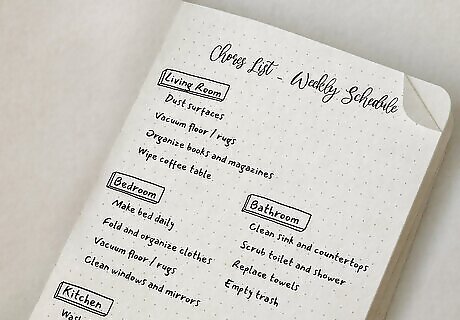 Chores List - Weekly Schedule
Living Room
Dust surfaces
Vacuum floor / rugs
Organize books and magazines
Wipe coffee table
Bedroom
Make bed daily
Fold and organize clothes
Vacuum floor / rugs
Clean windows and mirrors
Bathroom
Clean sink and countertops
Scrub toilet and shower
Replace towels
Empty trash
Kitchen